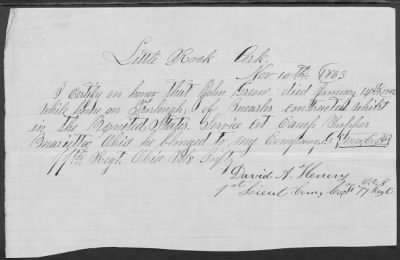 Little Rock Ark
Nov 10th 1863
I certify on honor that John Green died January 14th 1862
while home on Furlough of Measles contracted whilst
in the United States Service at Camp Tupper
Marietta Ohio he belonged to my Company
77th Regt. Ohio Vol Infty
David A. Henery
1st Lieut Com, 77 Regt